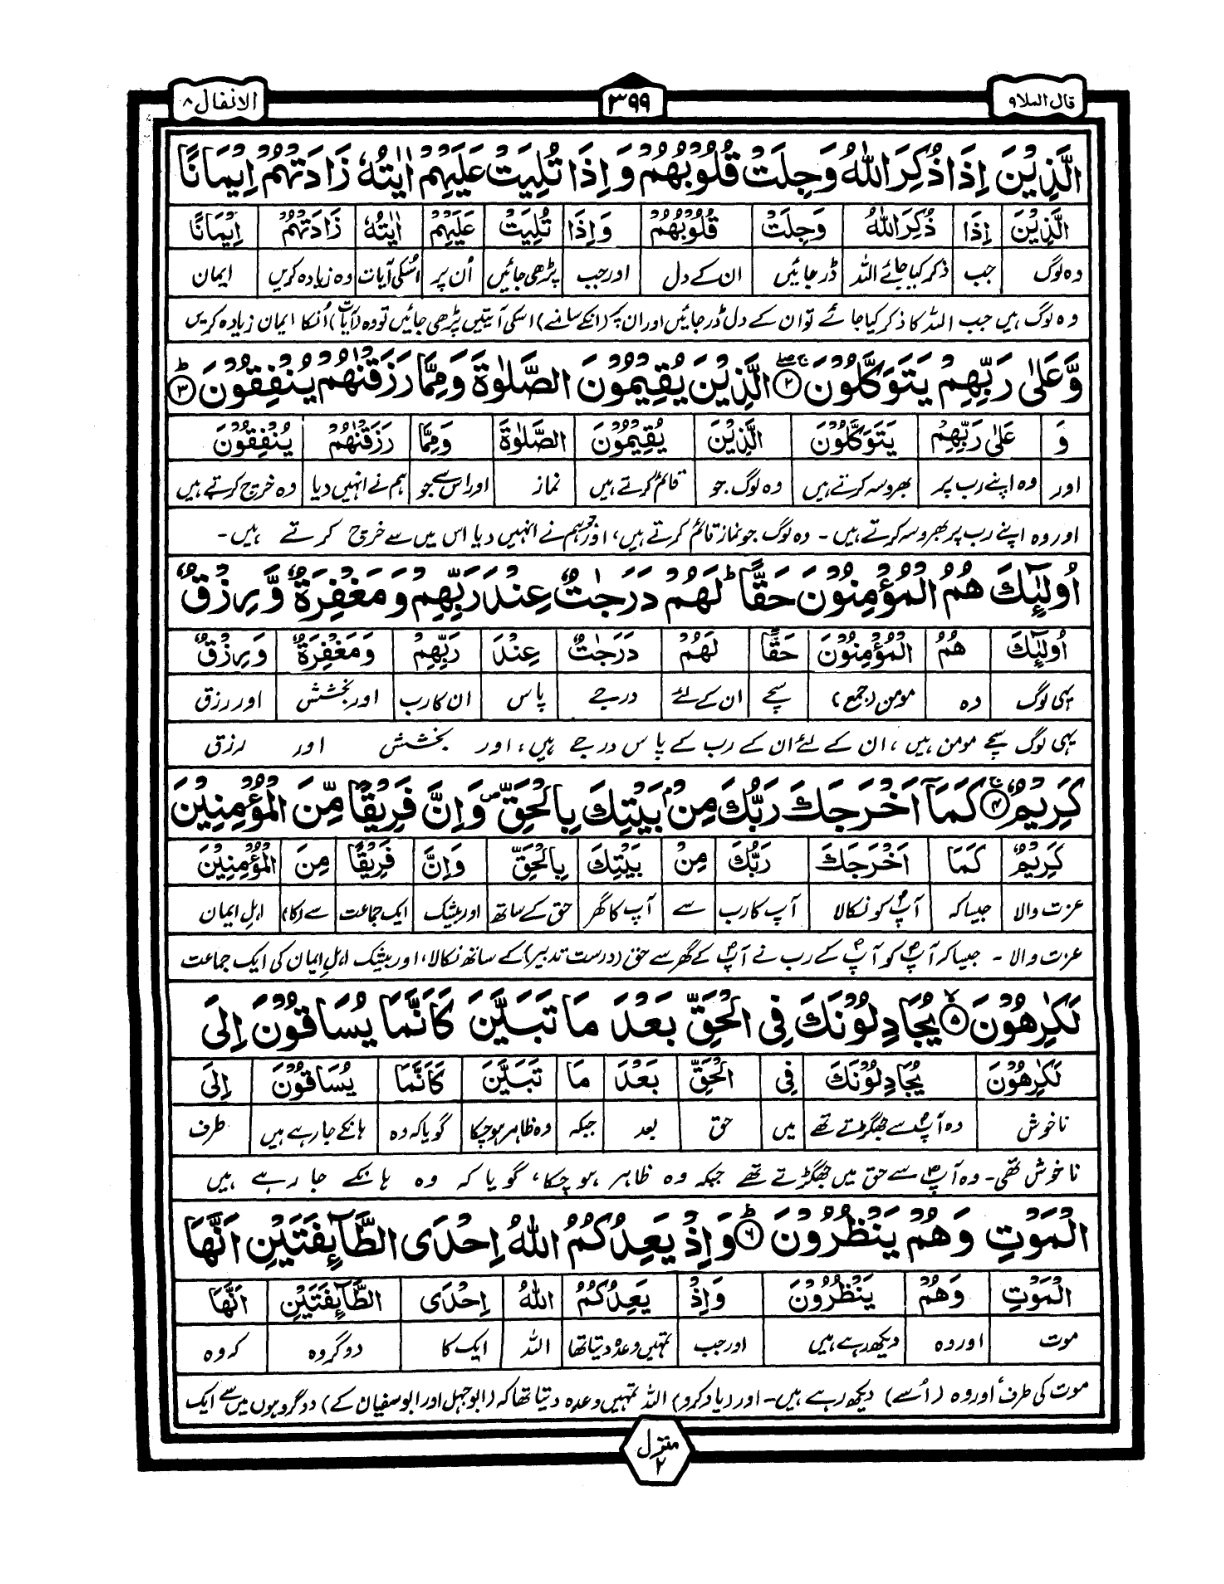 قال الملا۹ ۳۹۹ الانفال ۸
الَّذِيْنَ اِذَا ذُكِرَ اللّٰهُ وَجِلَتْ قُلُوْبُهُمْ وَاِذَا تُلِيَتْ عَلَيْهِمْ اٰيٰتُهٗ زَادَتْهُمْ اِيْمَانًا
الَّذِيْنَ اِذَا ذُكِرَ اللّٰهُ وَجِلَتْ قُلُوْبُهُمْ وَاِذَا تُلِيَتْ عَلَيْهِمْ اٰيٰتُهٗ زَادَتْهُمْ اِيْمَانًا
وہ لوگ جب ذکر کیا جائے اللہ ڈر جائیں ان کے دل اور جب پڑھی جائیں اُن پر اسکی آیات وہ زیادہ کریں ایمان
وہ لوگ ہیں جب اللہ کا ذکر کیا جائے تو ان کے دل ڈر جائیں اور ان پر (انکے سامنے) اسکی آیتیں پڑھی جائیں تو وہ (آیات) اُنکا ایمان زیادہ کریں
وَّعَلٰى رَبِّهِمْ يَتَوَكَّلُوْنَ ۲ الَّذِيْنَ يُقِيْمُوْنَ الصَّلٰوةَ وَمِمَّا رَزَقْنٰهُمْ يُنْفِقُوْنَ ۳
وَ عَلٰى رَبِّهِمْ يَتَوَكَّلُوْنَ الَّذِيْنَ يُقِيْمُوْنَ الصَّلٰوةَ وَمِمَّا رَزَقْنٰهُمْ يُنْفِقُوْنَ
اور وہ اپنے رب پر بھروسہ کرتے ہیں وہ لوگ جو قائم کرتے ہیں نماز اور اس سے جو ہم نے انہیں دیا وہ خرچ کرتے ہیں
اور وہ اپنے رب پر بھروسہ کرتے ہیں ۔ وہ لوگ جو نماز قائم کرتے ہیں، اور جو ہم نے انہیں دیا اس میں سے خرچ کرتے ہیں ۔
اُولٰٓئِكَ هُمُ الْمُؤْمِنُوْنَ حَقًّا ؕ لَهُمْ دَرَجٰتٌ عِنْدَ رَبِّهِمْ وَمَغْفِرَةٌ وَّرِزْقٌ
اُولٰٓئِكَ هُمُ الْمُؤْمِنُوْنَ حَقًّا لَهُمْ دَرَجٰتٌ عِنْدَ رَبِّهِمْ وَمَغْفِرَةٌ وَّرِزْقٌ
یہی لوگ وہ مومن (جمع) سچے ان کے لئے درجے پاس ان کا رب اور بخشش اور رزق
یہی لوگ سچے مومن ہیں، ان کے لئے ان کے رب کے پاس درجے ہیں، اور بخشش اور رزق
كَرِيْمٌ ۴ كَمَآ اَخْرَجَكَ رَبُّكَ مِنْۢ بَيْتِكَ بِالْحَقِّ ۪ وَاِنَّ فَرِيْقًا مِّنَ الْمُؤْمِنِيْنَ
كَرِيْمٌ كَمَا اَخْرَجَكَ رَبُّكَ مِنْ بَيْتِكَ بِالْحَقِّ وَاِنَّ فَرِيْقًا مِنَ الْمُؤْمِنِيْنَ
عزت والا جیساکہ آپؐ کو نکالا آپ کا رب سے آپ کا گھر حق کے ساتھ اور بیشک ایک جماعت سے (کا) اہلِ ایمان
عزت والا ۔ جیسا کہ آپؐ کو آپؐ کے رب نے آپؐ کے گھر سے حق (درست تدبیر) کے ساتھ نکالا، اور بیشک اہلِ ایمان کی ایک جماعت
لَكٰرِهُوْنَ ۵ يُجَادِلُوْنَكَ فِي الْحَقِّ بَعْدَ مَا تَبَيَّنَ كَاَنَّمَا يُسَاقُوْنَ اِلَى
لَكٰرِهُوْنَ يُجَادِلُوْنَكَ فِي الْحَقِّ بَعْدَ مَا تَبَيَّنَ كَاَنَّمَا يُسَاقُوْنَ اِلَى
ناخوش وہ آپؐ سے جھگڑتے تھے میں حق بعد جبکہ وہ ظاہر ہوچکا گویا کہ وہ ہانکے جارہے ہیں طرف
ناخوش تھی۔ وہ آپؐ سے حق میں جھگڑتے تھے جبکہ وہ ظاہر ہوچکا، گویا کہ وہ ہانکے جا رہے ہیں
الْمَوْتِ وَهُمْ يَنْظُرُوْنَ ۶ وَاِذْ يَعِدُكُمُ اللّٰهُ اِحْدَى الطَّآئِفَتَيْنِ اَنَّهَا
الْمَوْتِ وَهُمْ يَنْظُرُوْنَ وَاِذْ يَعِدُكُمُ اللّٰهُ اِحْدَى الطَّآئِفَتَيْنِ اَنَّهَا
موت اور وہ دیکھ رہے ہیں اور جب تمہیں وعدہ دیتا تھا اللہ ایک کا دو گروہ کہ وہ
موت کی طرف اور وہ (اُسے) دیکھ رہے ہیں۔ اور (یاد کرو) اللہ تمہیں وعدہ دیتا تھا کہ (ابوجہل اور ابوسفیان کے) دو گروہوں میں سے ایک
منزل ۲